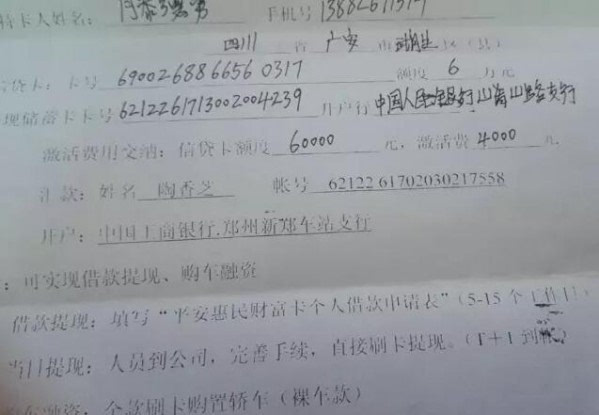 持卡人姓名: 手机号
四川 省 广安 市
信贷卡: 卡号 690026886656 0317 额度 6 万元
现储蓄卡卡号 6212261713002004239 开户行 中国人民银行山
激活费用交纳: 信贷卡额度 60000 元, 激活费 4000 元
汇款: 姓名 陶香芝 帐号 62122 61702030217558
开户: 中国工商银行.郑州新郑车站支行
: 可实现借款提现、购车融资
借款提现: 填写“平安惠民财富卡个人借款申请表”(5-15 个工作日)
当日提现: 人员到公司, 完善手续, 直接刷卡提现。(T+1 到
融资: 全款刷卡购置轿车 (裸车款)